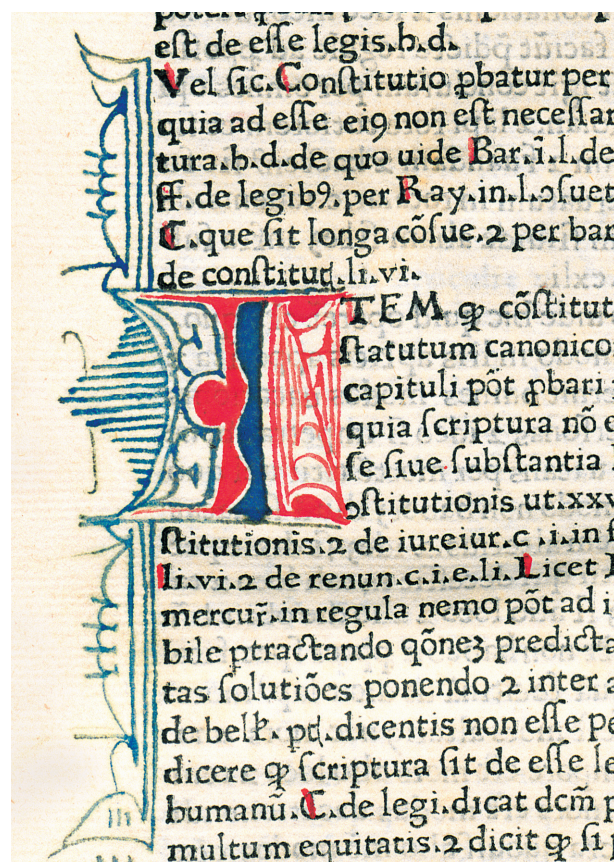 est de esse legis.b.d.
Vel sic.Constitutio ꝓbatur per
quia ad esse eiꝰ non est necessar
tura.b.d.de quo uide Bar.ī.l.de
ff.de legibꝰ.per Ray.in.l.ↄsuet
C.que sit longa cōsue.⁊ per bar
de constitut̄.li.vi.
ITEM ꝙ cōstitut
statutum canonico
capituli pōt ꝓbari
quia scriptura nō e
se siue substantia
ↄstitutionis ut.xxx
stitutionis.⁊ de iureiur.c .i.in
li.vi.⁊ de renun.c.i.e.li.Licet
mercur̄.in regula nemo pōt ad i
bile ptractando qōneꝫ predicta
tas solutiōes ponendo ⁊ inter a
de bell̄. pt̄.dicentis non esse pe
dicere ꝙ scriptura sit de esse le
humanū.C.de legi.dicat dcm̄ p
multum equitatis.⁊ dicit ꝙ si